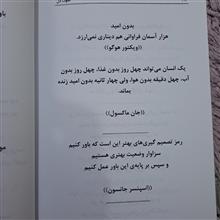 بدون امید
هزار آسمان فراوانی هم دیناری نمی‌ارزد.
((ویکتور هوگو))
یک انسان می‌تواند، چهل روز بدون غذا، چهل روز بدون
آب، چهل دقیقه بدون هوا، ولی چهار ثانیه بدون امید زنده
بماند.
((جان ماکسول))
رمز تصمیم گیری‌های بهتر این است که باور کنیم
سزاوار وضعیت بهتری هستیم
و سپس بر پایه‌ی این باور عمل کنیم
((اسپنسر جانسون))